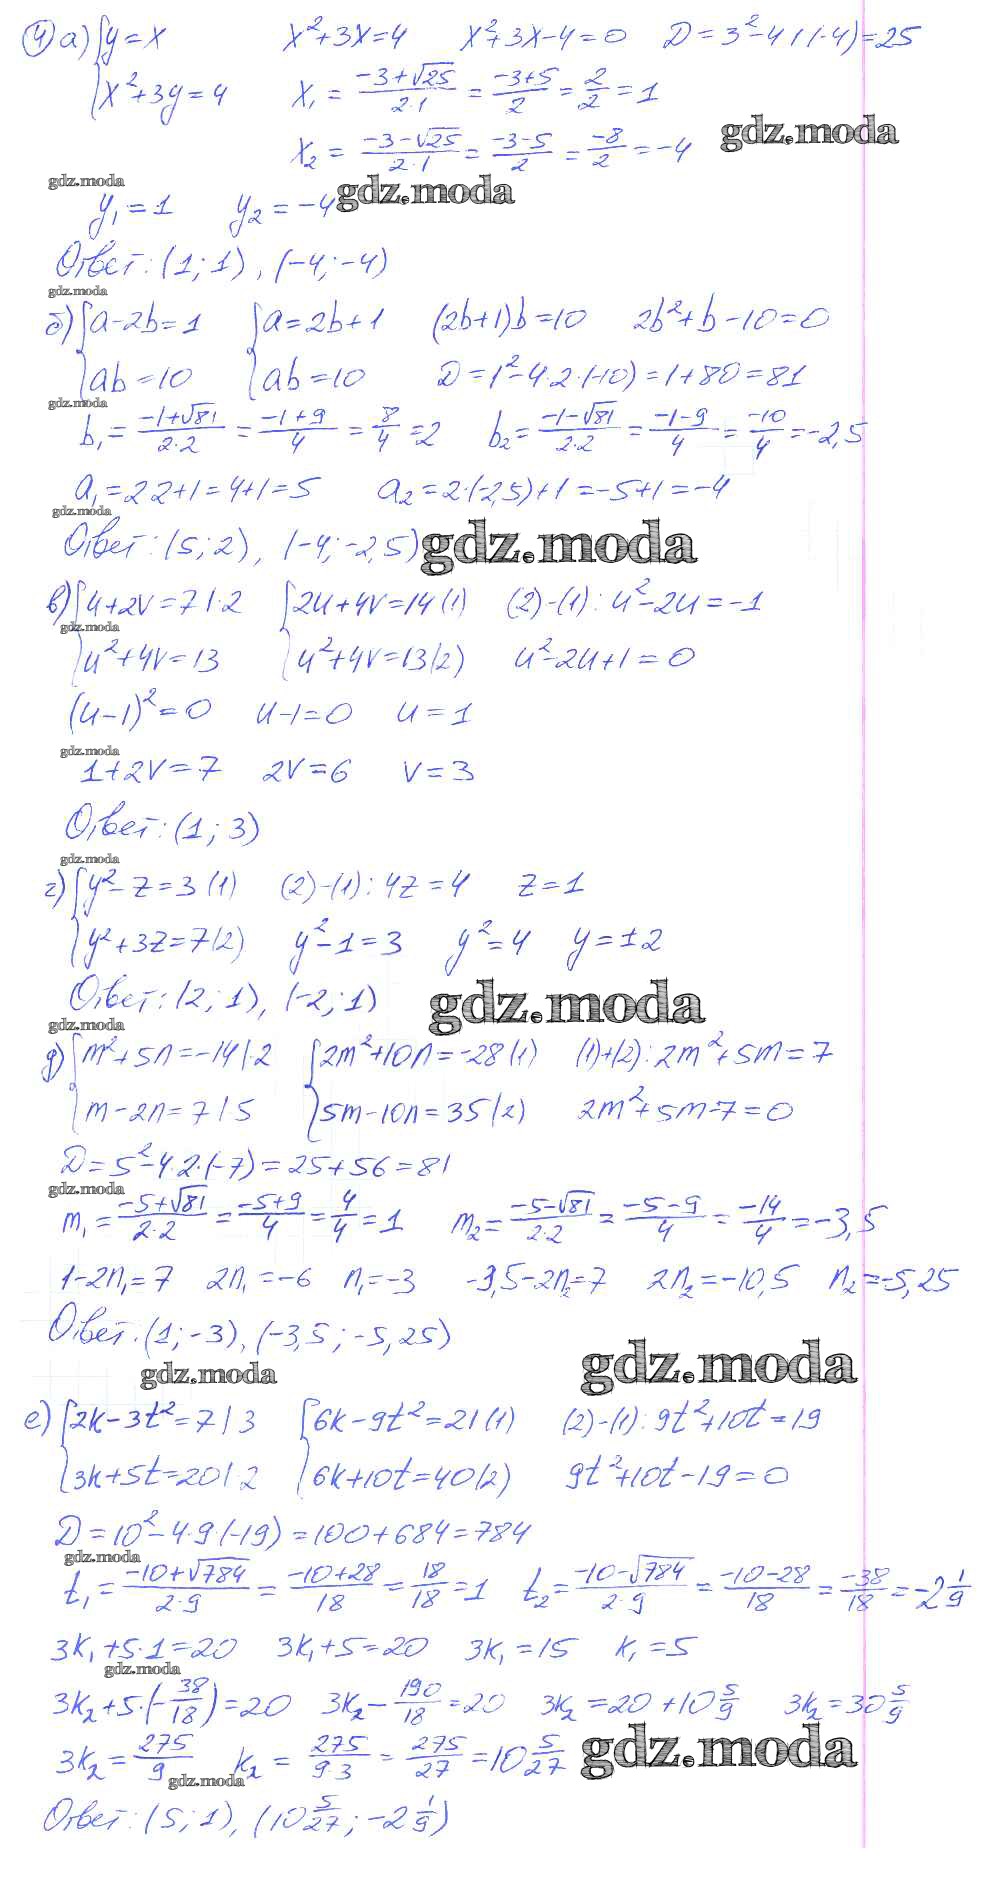 4) а) {y=x   x²+3x=4   x²+3x-4=0   D=3²-4·1·(-4)=25
{x²+3y=4   x₁ = (-3+√25)/(2·1) = (-3+5)/2 = 2/2 = 1
x₂ = (-3-√25)/(2·1) = (-3-5)/2 = -8/2 = -4
gdz.moda
gdz.moda
gdz.moda
y₁=1   y₂=-4
Ответ: (1;1), (-4;-4)
gdz.moda
б) {a-2b=1   {a=2b+1   (2b+1)b=10   2b²+b-10=0
{ab=10   {ab=10   D=1²-4·2·(-10)=1+80=81
gdz.moda
b₁ = (-1+√81)/(2·2) = (-1+9)/4 = 8/4 = 2   b₂ = (-1-√81)/(2·2) = (-1-9)/4 = -10/4 = -2,5
a₁=2·2+1=4+1=5   a₂=2·(-2,5)+1=-5+1=-4
gdz.moda
Ответ: (5;2), (-4;-2,5)
gdz.moda
в) {u+2v=7 |·2   {2u+4v=14 (1)   (2)-(1): u²-2u=-1
gdz.moda
{u²+4v=13   {u²+4v=13 (2)   u²-2u+1=0
(u-1)²=0   u-1=0   u=1
gdz.moda
1+2v=7   2v=6   v=3
Ответ: (1;3)
gdz.moda
г) {y²-z=3 (1)   (2)-(1): 4z=4   z=1
{y²+3z=7 (2)   y²-1=3   y²=4   y=±2
Ответ: (2;1), (-2;1)
gdz.moda
gdz.moda
д) {m²+5n=-14 |·2   {2m²+10n=-28 (1)   (1)+(2): 2m²+5m=7
{m-2n=7 |·5   {5m-10n=35 (2)   2m²+5m-7=0
D=5²-4·2·(-7)=25+56=81
gdz.moda
m₁ = (-5+√81)/(2·2) = (-5+9)/4 = 4/4 = 1   m₂ = (-5-√81)/(2·2) = (-5-9)/4 = -14/4 = -3,5
1-2n₁=7   2n₁=-6   n₁=-3   -3,5-2n₂=7   2n₂=-10,5   n₂=-5,25
Ответ: (1;-3), (-3,5;-5,25)
gdz.moda
gdz.moda
е) {2k-3t²=7 |·3   {6k-9t²=21 (1)   (2)-(1): 9t²+10t=19
{3k+5t=20 |·2   {6k+10t=40 (2)   9t²+10t-19=0
D=10²-4·9·(-19)=100+684=784
gdz.moda
t₁ = (-10+√784)/(2·9) = (-10+28)/18 = 18/18 = 1   t₂ = (-10-√784)/(2·9) = (-10-28)/18 = -38/18 = -2 1/9
3k₁+5·1=20   3k₁+5=20   3k₁=15   k₁=5
gdz.moda
3k₂+5·(-38/18)=20   3k₂-190/18=20   3k₂=20+10 5/9   3k₂=30 5/9
3k₂ = 275/9   k₂ = 275/(9·3) = 275/27 = 10 5/27
gdz.moda
gdz.moda
Ответ: (5;1), (10 5/27; -2 1/9)